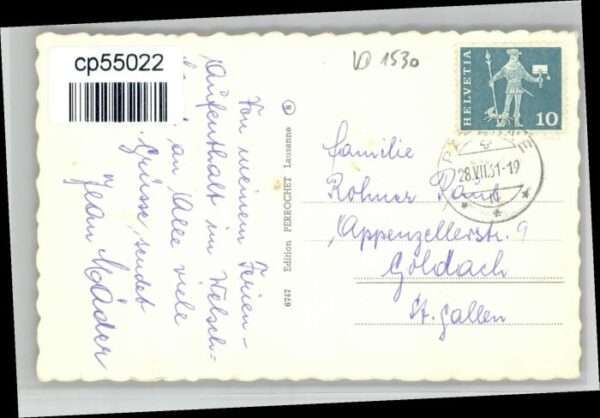 cp55022
VD 1530
HELVETIA
10
28.VII.61-19
Von meinem Ferien-
Aufenthalt im Welsch-
an Alle viele
Grüsse, sendet
Jean Mäder
6767 Edition PERROCHET Lausanne
Familie
Rohner Paul
Appenzellerstr. 9
Goldach
St. Gallen